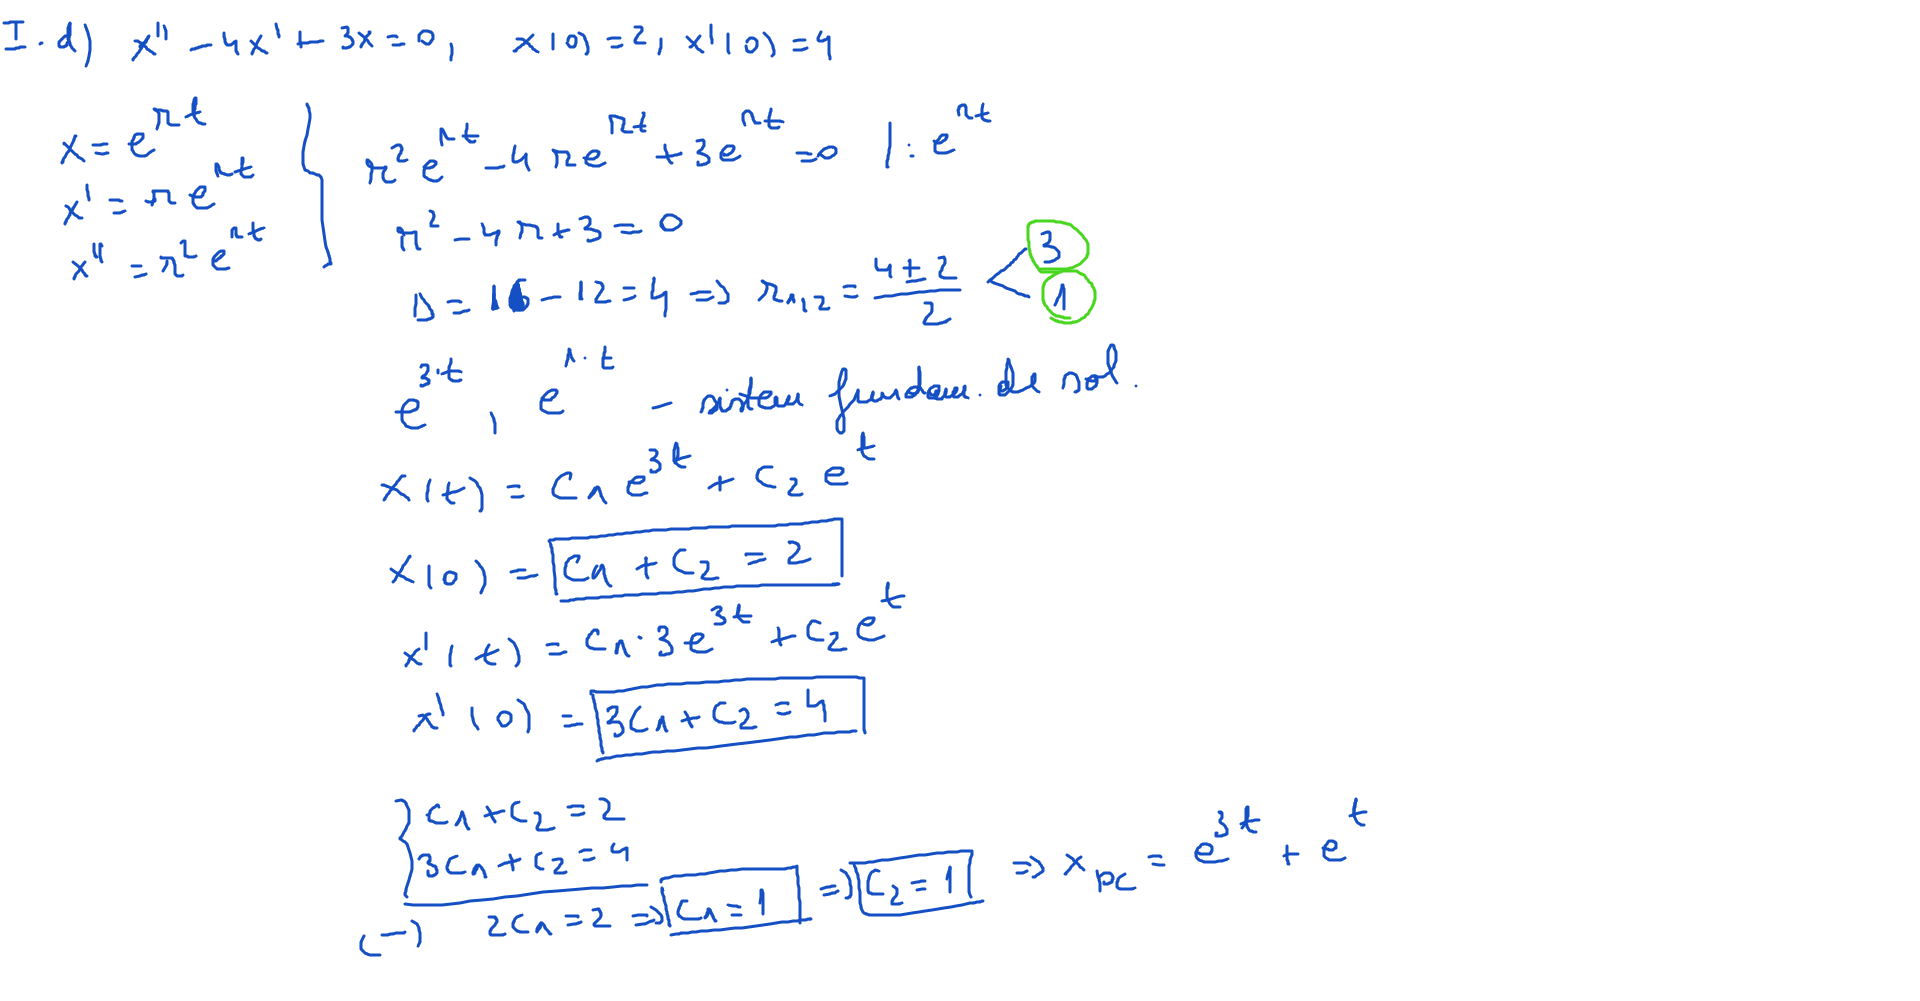 I. d) x'' - 4x' + 3x = 0, x(0) = 2, x'(0) = 4
x = e^{rt}
x' = r e^{rt}
x'' = r² e^{rt}
r² e^{rt} - 4 r e^{rt} + 3 e^{rt} = 0 | : e^{rt}
r² - 4r + 3 = 0
Δ = 16 - 12 = 4 => r_{1,2} = (4 ± 2)/2 < 3 1
e^{3·t}, e^{1·t} - sistem fundam. de sol.
x(t) = C₁ e^{3t} + C₂ e^t
x(0) = C₁ + C₂ = 2
x'(t) = C₁ · 3 e^{3t} + C₂ e^t
x'(0) = 3C₁ + C₂ = 4
C₁ + C₂ = 2
3C₁ + C₂ = 4
(-) 2C₁ = 2 => C₁ = 1 => C₂ = 1 => x_{PC} = e^{3t} + e^t